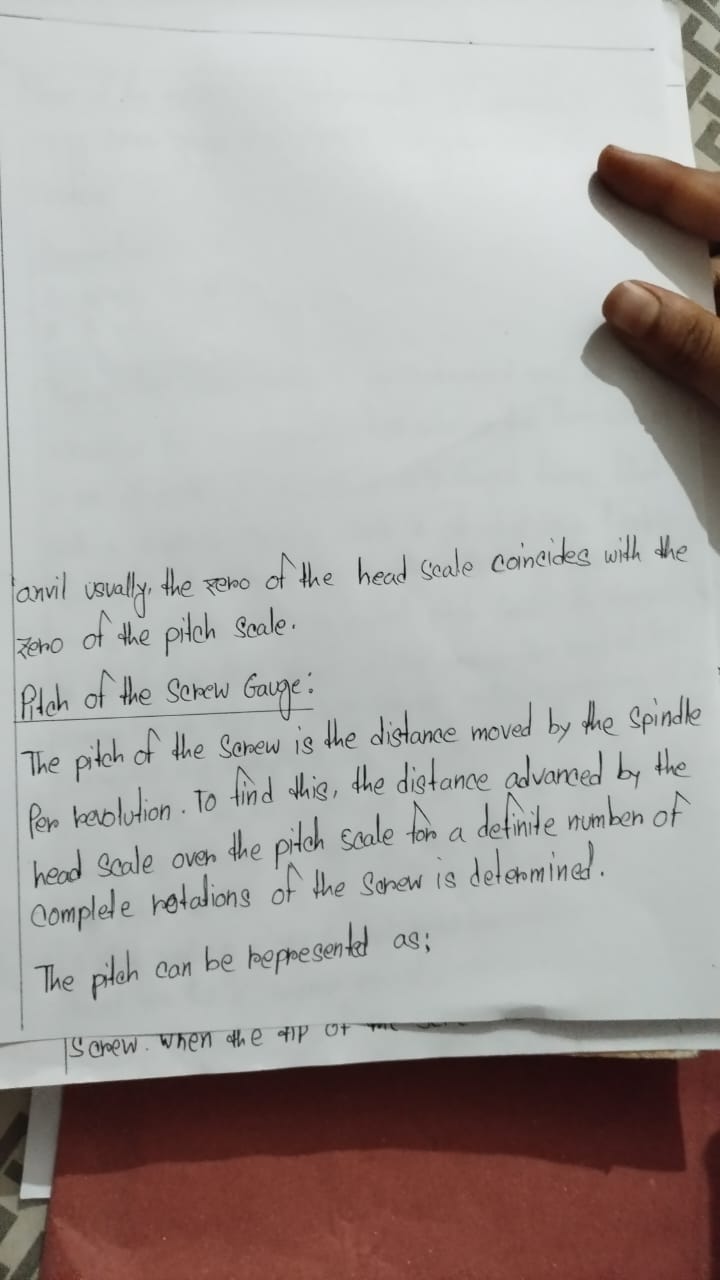 anvil usually, the zero of the head scale coincides with the
zero of the pitch scale.
Pitch of the Screw Gauge:
The pitch of the Screw is the distance moved by the spindle
Per revolution. To find this, the distance advanced by the
head scale over the pitch scale for a definite number of
complete rotations of the screw is determined.
The pitch can be represented as;
Screw. When the tip of the